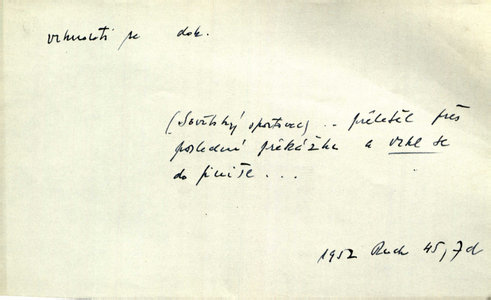 vrhnouti se dok.
(Sovětský sportovec) .. přeletěl přes
poslední překážku a vrhl se
do finiše...
1952 Ruch 45, 7d